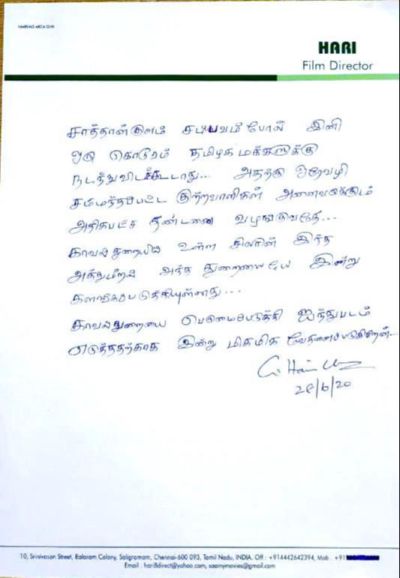 HARI
Film Director
சாத்தான்குளம் சம்பவம் போல் இனி
ஒரு கொடூரம் தமிழக மக்களுக்கு
நடந்துவிடக்கூடாது... அதற்கு ஒரேவழி
சம்மந்தப்பட்ட குற்றவாளிகள் அனைவருக்கும்
அதிகபட்ச தண்டனை வழங்குவதே...
காவல்துறையில் உள்ள சிலரின் இந்த
அத்துமீறல் அந்த துறையையே இன்று
களங்கப்படுத்தியுள்ளது...
காவல்துறையை பெருமைப்படுத்தி ஐந்துபடம்
எடுத்ததற்காக இன்று மிகமிக வேதனைப்படுகிறேன்..
28/6/20
10, Srinivasan Street, Balaram Colony, Saligramam, Chennai-600 093, Tamil Nadu, INDIA. Off : +914442642394, Mob : +91
Email : hari8direct@yahoo.com, saamymovies@gmail.com